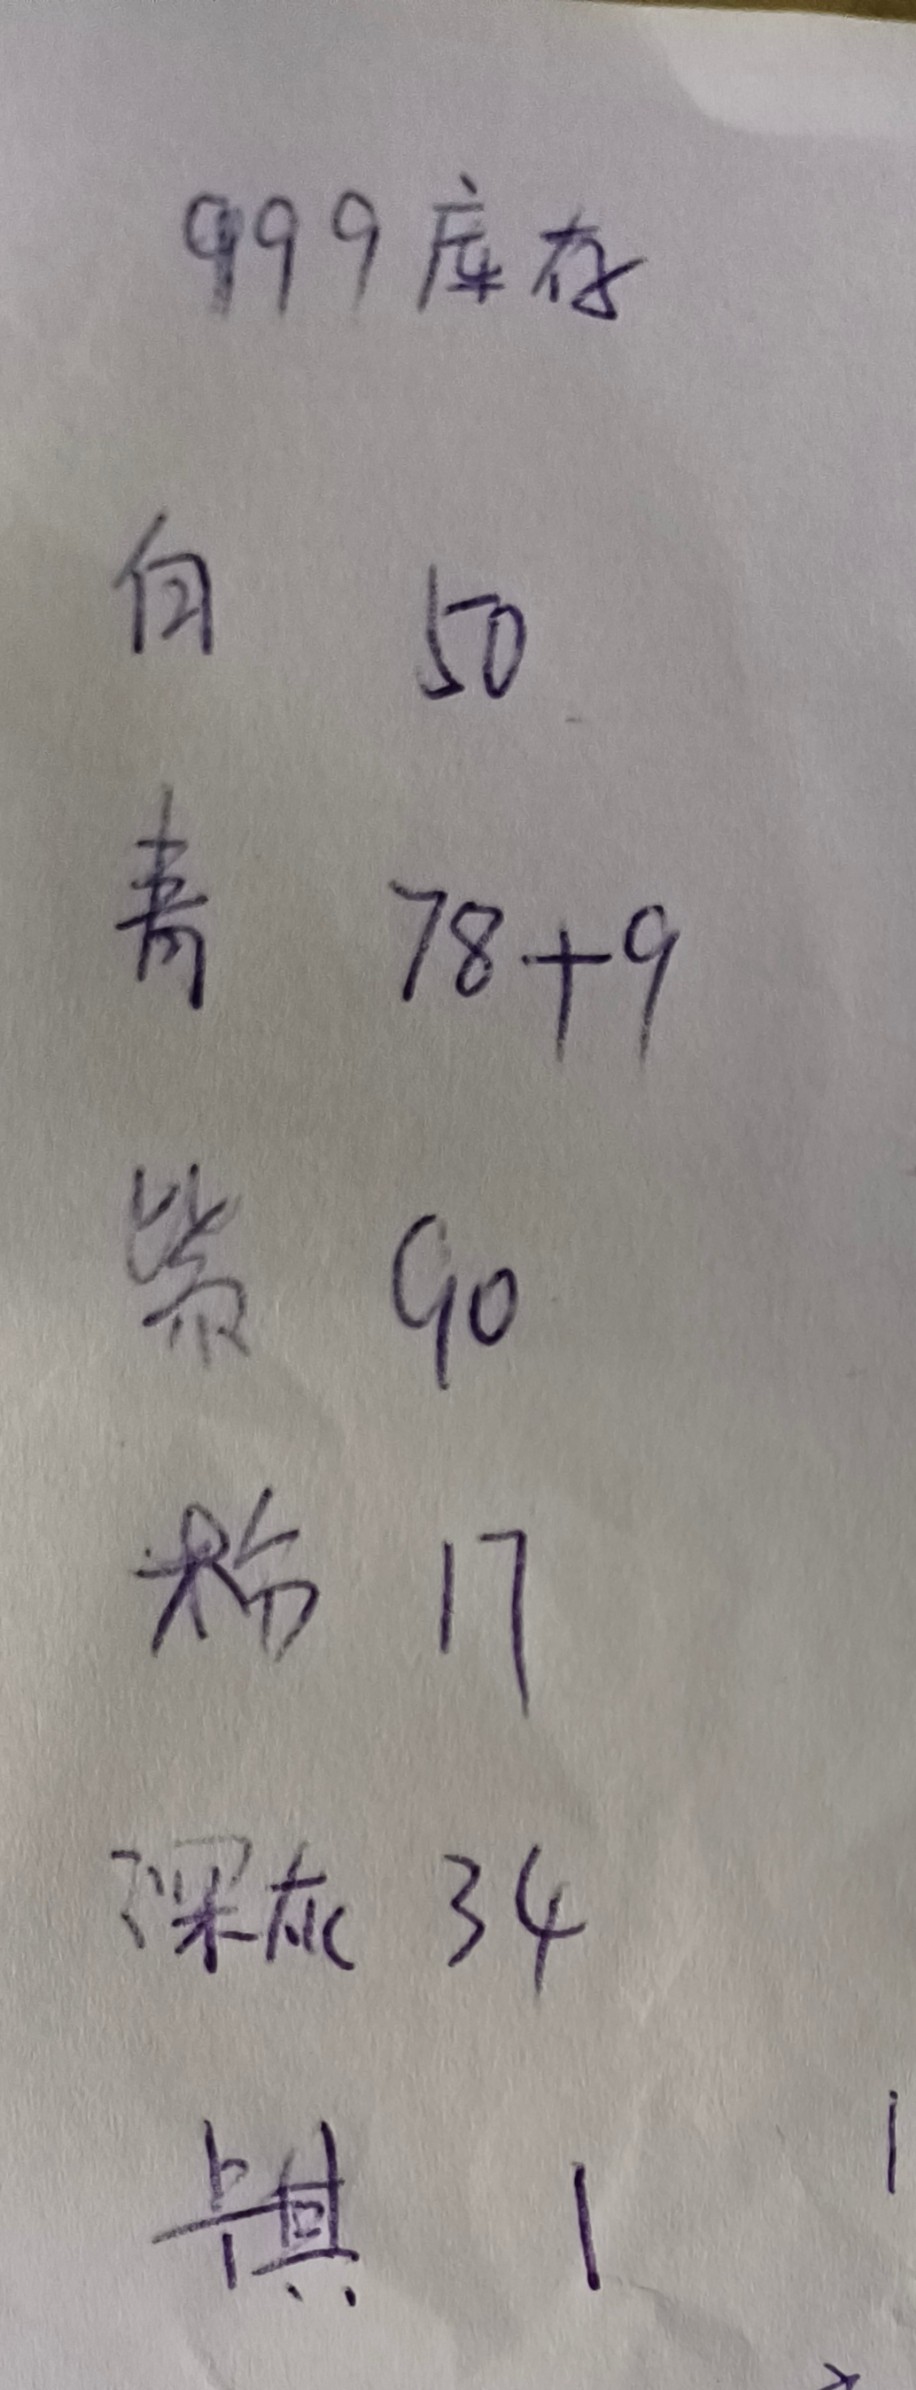 999库存
白 50
青 78+9
紫 90
粉 17
深灰 34
1